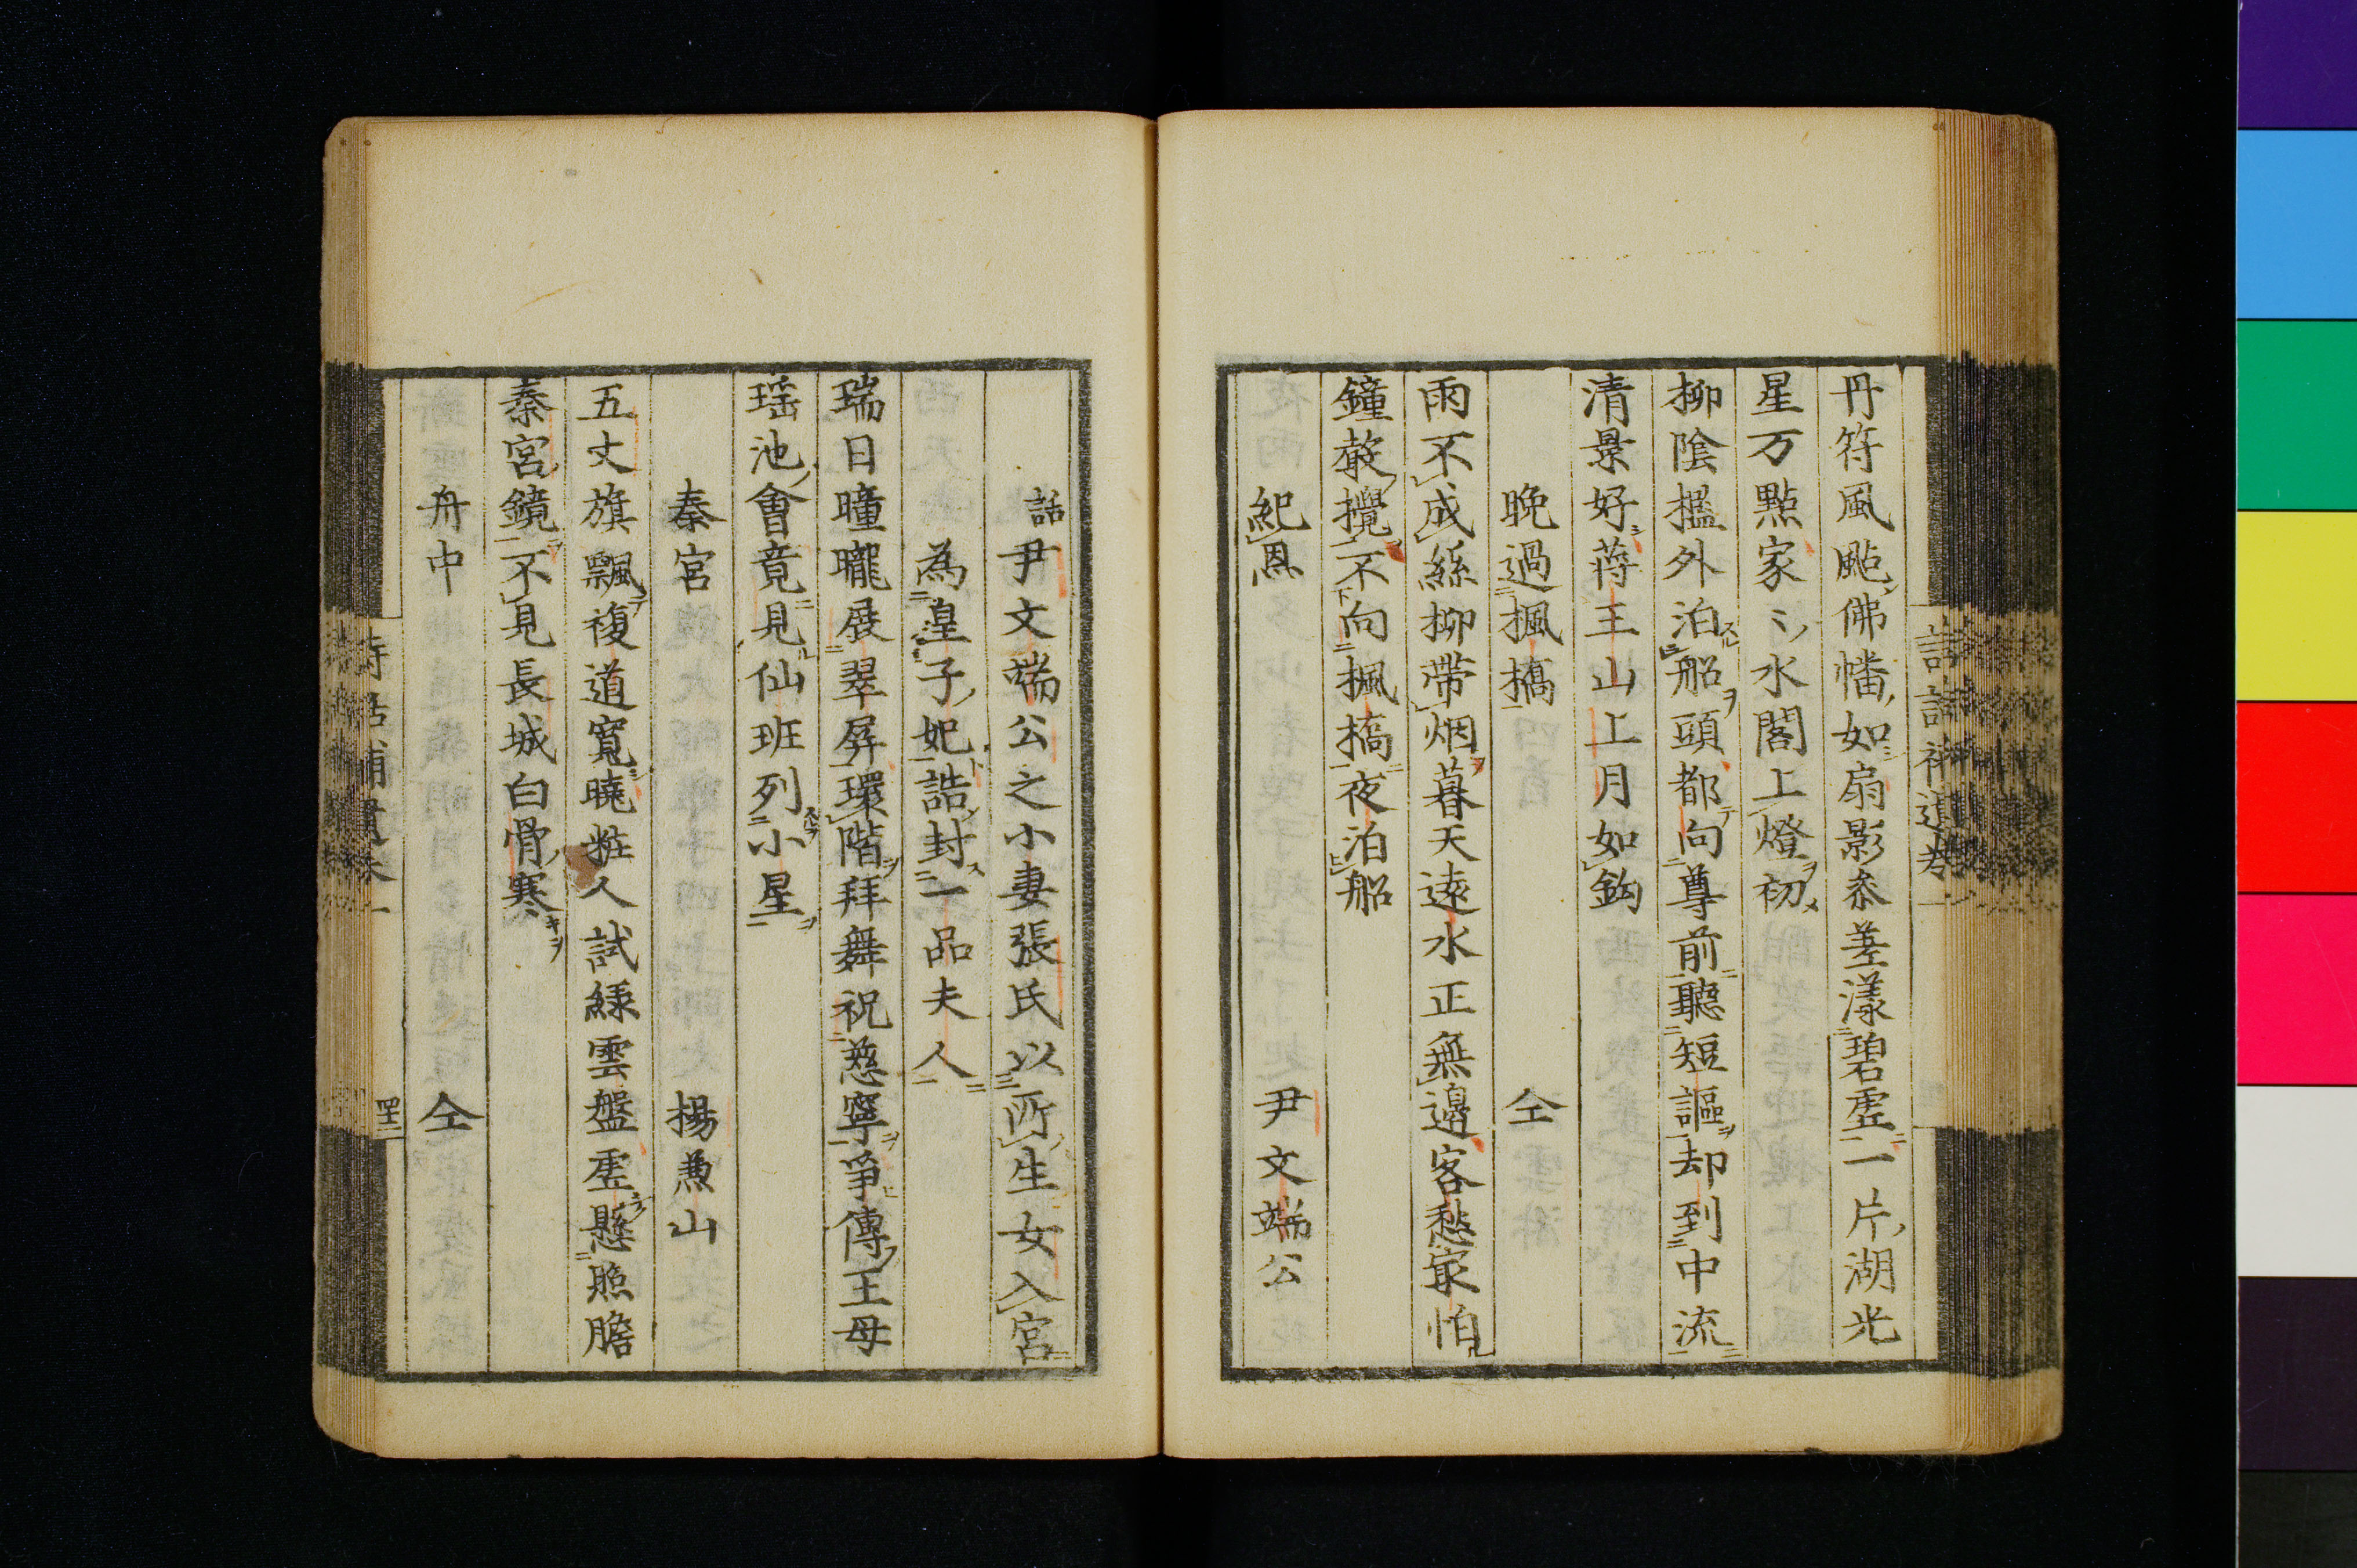 丹符風颭佛幡如扇影叅差漾碧虗一片湖光
星万點家〻水閣上燈初
柳陰楹外泊船頭都向尊前聽短謳却到中流
清景好蒋王山上月如鈎
晚過楓橋　仝
雨不成絲柳帶烟暮天遠水正無邊客愁冣怕
鐘聲攪不向楓橋夜泊船
紀恩　尹文端公
話尹文端公之小妻張氏以所生女入宮
為皇子妃誥封一品夫人
瑞日曈曨展翠屏環階拜舞祝慈寧爭傳王母
瑶池會竟見仙班列小星
秦宮　楊兼山
五丈旗飄複道寬曉粧人試綠雲盤虗懸照膽
秦宮鏡不見長城白骨寒
舟中　仝